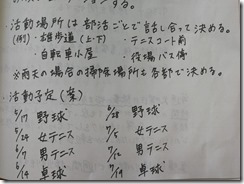 活動場所は部活ごとで話し合って決める。
(例)・雄歩道(上・下)　・テニスコート前
・自転車小屋　・役場バス停
※雨天の場合の掃除場所も各部で決める。
・活動予定(案)
5/17 野球　6/28 野球
5/24 女テニス　7/5 女テニス
6/7 男テニス　7/12 男テニス
6/14 卓球　7/19 卓球